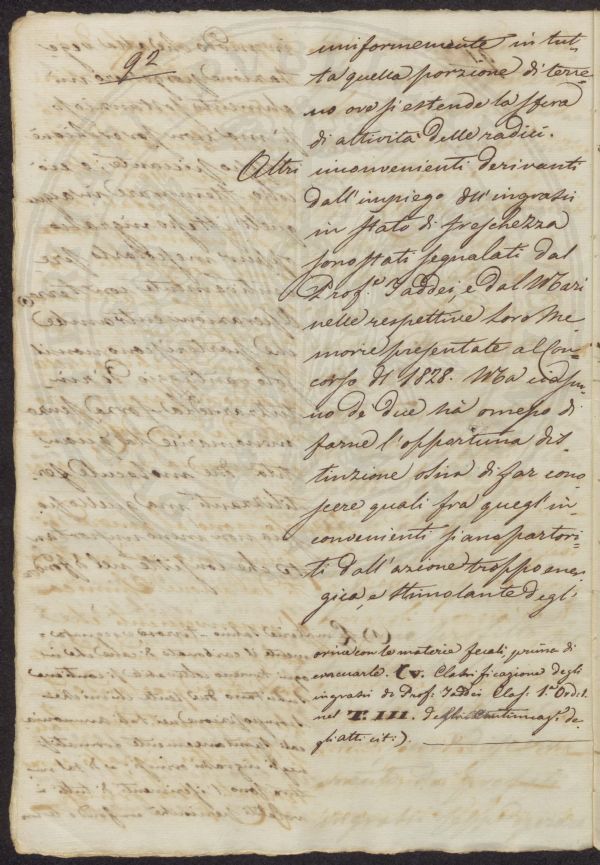 92
uniformemente in tut-
ta quella porzione di terre-
no ove si estende la sfera
di attività delle radici.
Altri inconvenienti derivanti
dall'impiego dell'ingrassi
in stato di freschezza
sono stati segnalati dal
Prof.e Taddei, e dal Mari
nelle respettive loro Me
morie presentate al Con-
corso del 1828. Ma ciascu-
no de due ha omesso di
farne l'opportuna dis-
tinzione ossia di far cono
scere quali fra quegl'in-
convenienti siano partori-
ti dall'azione troppo ener-
gica, e stimolante degl'
orine con le materie fecali, prima di
evacuarle. (v. Classificazione degli
ingrassi di Prof. Taddei Clas. 1.a Ord. 1.
nel T. III. della Continuaz.e de-
gli atti cit:).